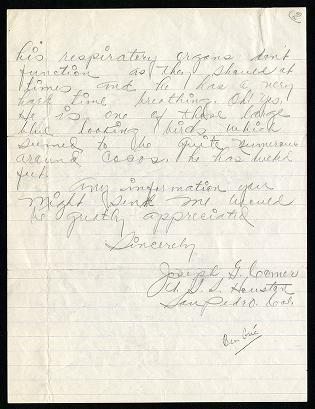 2
his respiratory organs don't
function as they should at
times and he has a very
hard time breathing. Oh yes,
He is one of those large
blue looking birds which
seemed to be quite numerous
around Cocos. he has web'd
feet.
Any information you
might send me would
be greatly appreciated
Sincerely
Joseph G.
U. S. S. Houston
San Pedro. Cal.